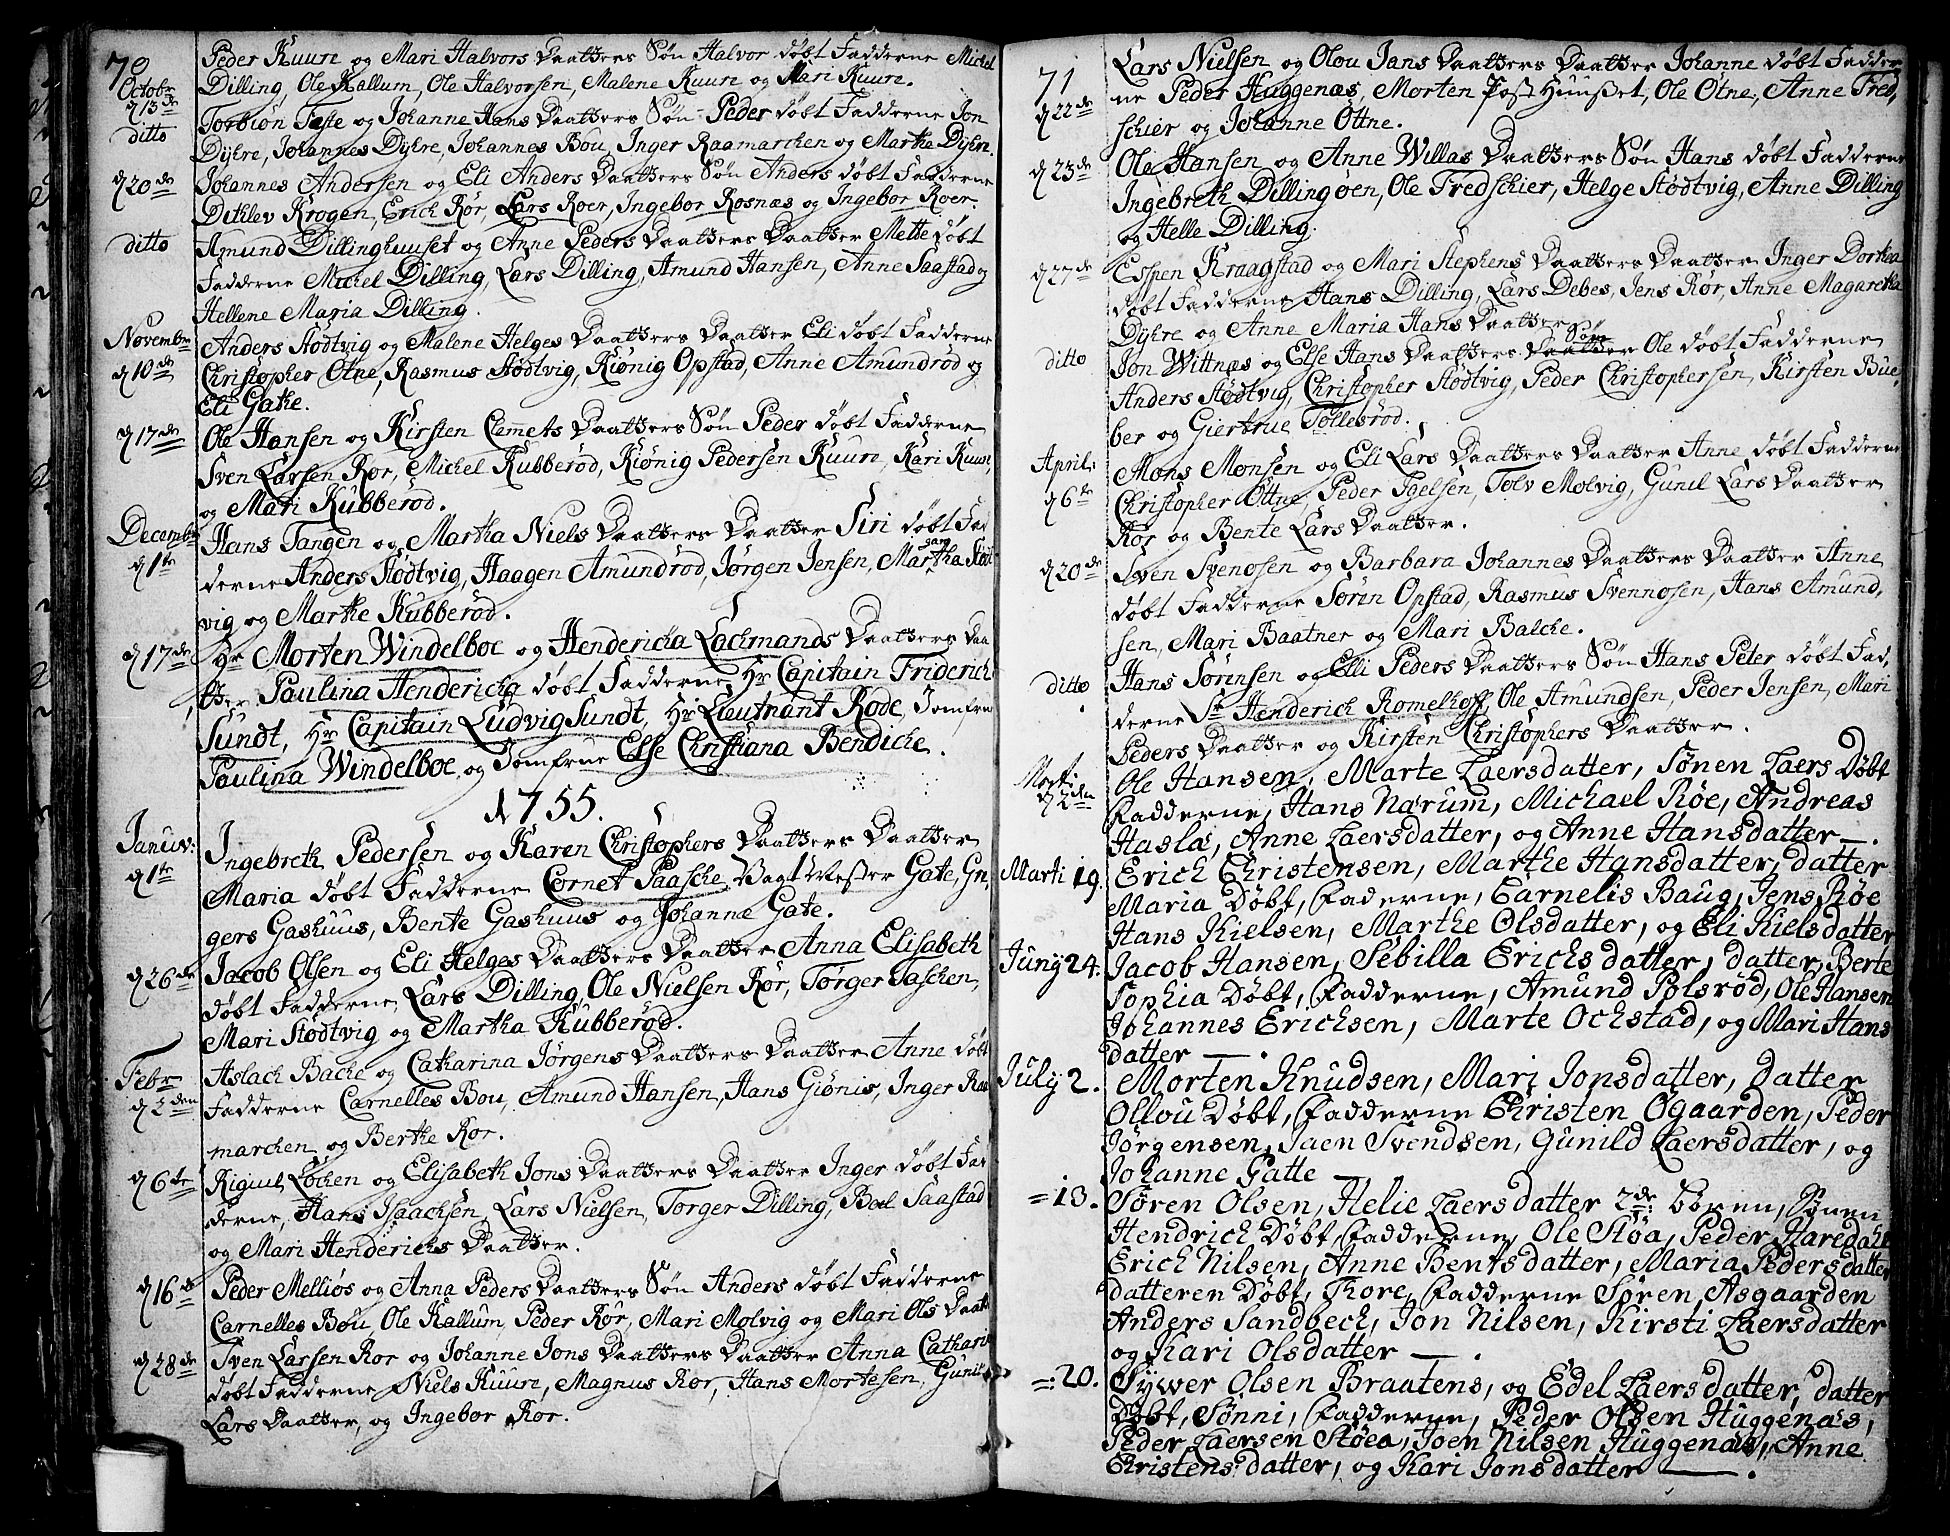 70
Peder Kuure og Mari Halvors Daatters Søn Halvor døbt Fadderne Michel
Octobr Dilling, Ole Kallum, Ole Halvorsen, Malene Kuure og Mari Kuure.
d 13de Torbiön Tefte og Johanne Hans Daatters Søn Peder døbt Fadderne Jon
ditto Dÿhre, Johannes Dÿhre, Johannes Bou, Inger Raamarchen og Marthe Dÿhre.
d 20de Johannes Andersen og Eli Anders Daatters Søn Anders døbt Fadderne
Dithlev Krogen, Erich Rör, Lars Roer, Ingebor Rosnæs og Ingebor Roer.
ditto Amund Dillinghuuset og Anne Peders Daatters Daatter Mette døbt
Fadderne Michel Dilling, Lars Dilling, Amund Hansen, Anne Saastad og
Hellene Maria Dilling.
Novembr Anders Stödtvig og Malene Helges Daatters Daatter Eli døbt Fadderne
d 10de Christopher Otne, Rasmus Stödtvig, Kiönig Opstad, Anne Amundröd og
Eli Gathe.
d 17de Ole Hansen og Kirsten Clemets Daatters Søn Peder døbt Fadderne
Sven Larsen Ror, Michel Kubberöd, Kiönig Pedersen Kuure, Kari Kuure,
og Mari Kubberöd.
Decembr Hans Tangen og Martha Niels Daatters Daatter Siri døbt Fad
d 1te derne Anders Stödtvig, Haagen Amundröd, Jörgen Jensen, Martha Stödt
vig og Marthe Kubberöd.
d 17de Hr Morten Windelboe og Hendericha Lachmands Daatters Daa
tter Paulina Hendericha døbt Fadderne Hr Capitain Friderich
Sundt, Hr Capitain Ludvig Sundt, Hr Lieutnant Rode, Jomfrue
Paulina Windelboe og Jomfrue Else Christiana Bendiche.
1755.
Januv: Ingebreth Pedersen og Karen Christophers Daatters Daatter
d 1te Maria døbt Fadderne Cornet Paasche, Vagtmester Gate, In,
gers Gashuus, Bente Gashuus og Johanne Gate.
d 26de Jacob Olsen og Eli Helges Daatters Daatter Anna Elisabeth
døbt Fadderne Lars Dilling, Ole Nielsen Rör, Törger Taschen,
Mari Stödtvig og Martha Kubberöd.
Febr Aslach Bache og Catharina Jörgens Daatters Daatter Anne døbt
d 2den Fadderne Carnelles Bou, Amund Hansen, Hans Giönis, Inger Raa
marchen og Berthe Ror.
d 6te Löchen og Elisabeth Jons Daatters Daatter Inger døbt Fad
derne, Hans Isaachsen, Lars Nielsen, Torger Dilling, Boel Saastad
og Mari Henderichs Daatter.
d 16de Peder Melliös og Anna Peders Daatters Søn Anders døbt Fadderne
Carnelles Bou, Ole Kallum, Peder Rör, Mari Molvig og Mari Ols Daatt
d 28de Sven Larsen Ror og Johanne Jons Daatters Daatter Anna Cathari
døbt Fadderne Niels Kuure, Magnus Rör, Hans Mortesen, Gunil
Lars Daatter, og Ingebor Ror.
71
Lars Nielsen og Olou Jans Daatters Daatter Johanne døbt Fadder
d 22de ne Peder Huggenæs, Morten Post Huuset, Ole Otne, Anne Fred,
schier og Johanne Ottne.
d 23de Ole Hansen og Anne Willas Daatters Søn Hans døbt Fadderne
Ingebreth Dillingöen, Ole Fredschier, Helge Stödtvig, Anne Dilling
og Helle Dilling.
d 27de Espen Kraagstad og Mari Stephens Daatters Daatter Inger Dorthea
døbt Fadderne Hans Dilling, Lars Debes, Jens Rör, Anne Magaretha
Dÿhre og Anne Maria Hans Daatter
ditto Jon Wittnæs og Else Hans Daatters Søn Ole døbt Fadderne
Anders Stödtvig, Christopher Stödtvig, Peder Christophersen, Kirsten Bue,
ber og Giertrue Tollesröd.
April: Mons Monsen og Eli Lars Daatters Daatter Anne døbt Fadderne
d 6te Christopher Ottne, Peder Igelsen, Tolv Molvig, Gunil Lars Daatter
Ror og Bente Lars Daatter.
d 20de Sven Svenosen og Barbara Johannes Daatters Daatter Anne
døbt Fadderne Sören Opstad, Rasmus Svennosen, Hans Amund,
sen, Mari Baatner og Mari Balche.
ditto Hans Sörinsen og Elli Peders Daatters Søn Hans Peter døbt Fad,
derne Sr Henderich Romelhoff, Ole Amundsen, Peder Jensen, Mari
Peders Daatter og Kirsten Christophers Daatter.
d 2den Ole Hansen, Marte Laersdatter, Sønen Laers Døbt
Fadderne, Hans Narum, Michael Röe, Andreas
Hasla, Anne Laersdatter, og Anne Hansdatter.
Marti 19. Erich Christensen, Marthe Hansdatter, datter
Maria Døbt, Fadderne, Carnelis Baug, Jens Röe
Hans Kielsen, Marthe Olsdatter, og Eli Kielsdatter
Juny 24. Jacob Hansen, Sebilla Erichsdatter, datter Berte
Sophia Døbt, Fadderne, Amund Polsröd, Ole Hansen
Johannes Erichsen, Marte Ochstad, og Mari Hans
datter.
July 2. Morten Knudsen, Mari Jonsdatter, datter
Ollou Døbt, Fadderne Christen Ögaarden, Peder
Jörgensen, Jaen Svendsen, Gunild Laersdatter, og
Johanne Gatte
= 13. Søren Olsen, Helie Laersdatter 2de: Børen, Sønen
Hendrich Døbt, Fadderne, Ole Støa, Peder Karedahl
Erich Nilsen, Anne Bentsdatter, Maria Pedersdatter
datteren Døbt, Thore, Fadderne Søren Asgaarden
Anders Sandbech, Jon Nilsen, Kirsti Laersdatter
og Kari Olsdatter.
= 20. Sywer Olsen Braatens, og Edel Laersdatter, datter
Døbt, Sønni, Fadderne, Peder Olsen Huggenæs,
Peder Laersen Støea, Joen Nilsen Huggenæs, Anne
Christensdatter, og Kari Jonsdatter.